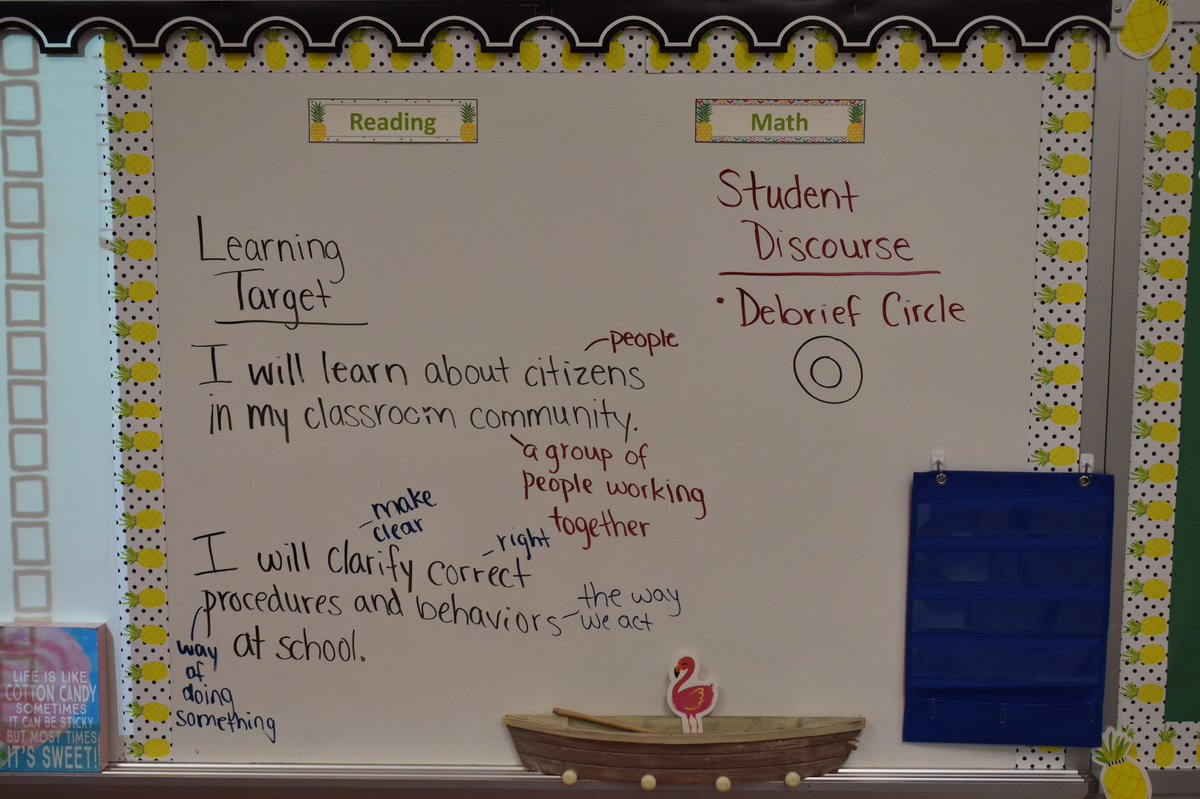 Reading
Learning
Target
people
I will learn about citizens
in my classroom community.
a group of
people working
together
make
clear
right
I will clarify correct
procedures and behaviors
the way
we act
at school.
way
of
doing
something
Math
Student
Discourse
• Debrief Circle
LIFE IS LIKE
COTTON CANDY
SOMETIMES
IT CAN BE STICKY
BUT MOST TIMES
IT'S SWEET!